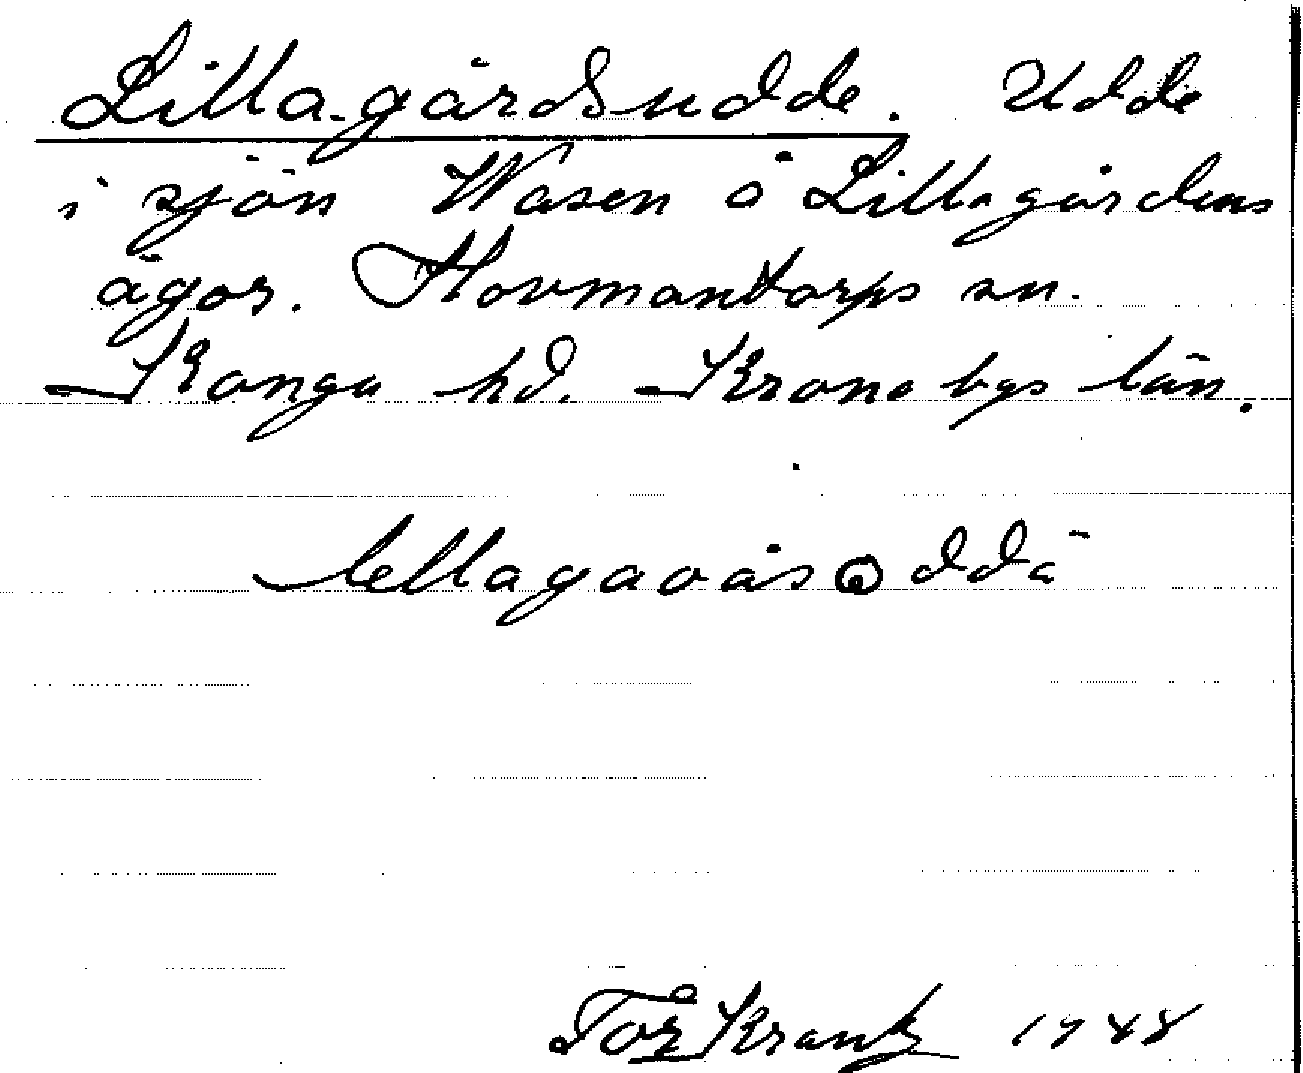 Lillagårdsudde. Udde
i sjön Wasen å Lillagårdens
ägor. Hovmantorps sn.
Konga hd. Kronobgs län.
lellagaoås ddä
Tor Krantz 1948